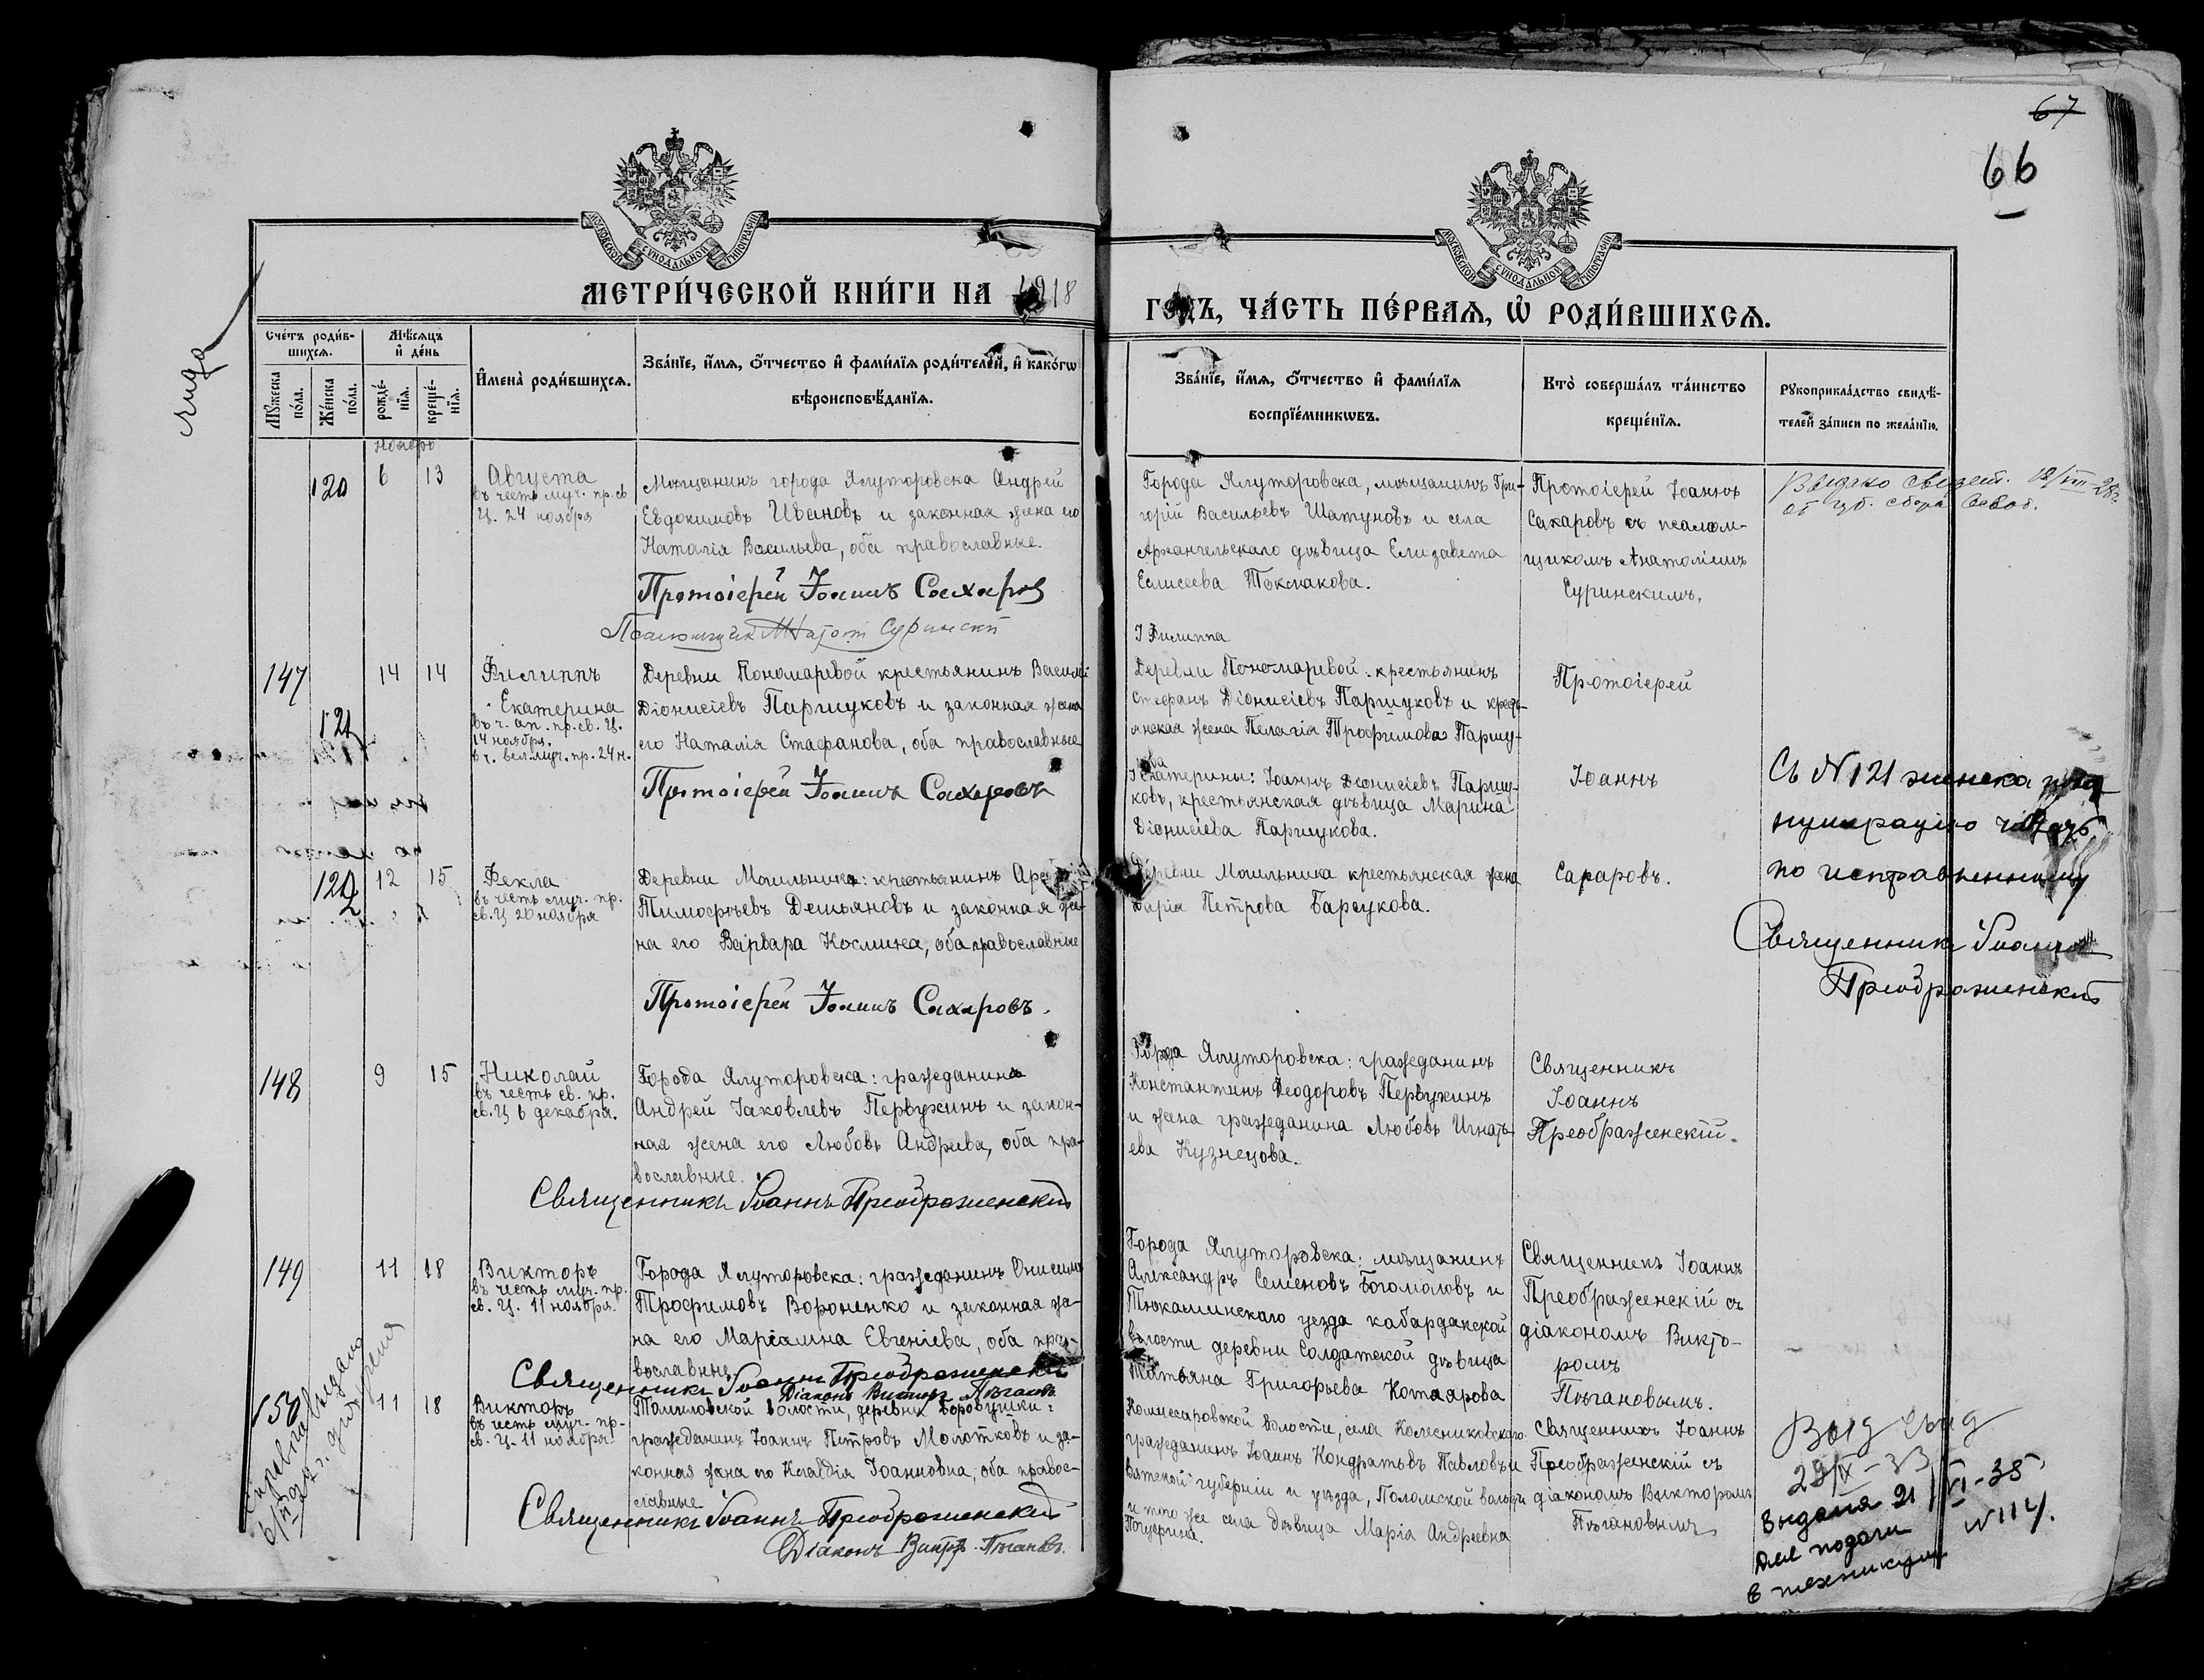 67
66
МОСКОВСКОЙ СѴНОДАЛЬНОЙ ТИПОГРАФІИ
МОСКОВСКОЙ СѴНОДАЛЬНОЙ ТИПОГРАФІИ
МЕТРИ́ЧЕСКОЙ КНИ́ГИ НА 1918
ГОДЪ, ЧА́СТЬ ПЕ́РВАѦ, Ѡ҆ РОДИ́ВШИХСѦ.
Сче́тъ роди́в-
шихсѧ.
Мѣ́сѧцъ
и҆ де́нь
Мꙋ́жеска
по́ла.
Же́нска
по́ла.
рожде́-
нїѧ.
креще́-
нїѧ.
И҆мена̀ роди́вшихсѧ.
Зва́нїе, и҆́мѧ, ѻ҆́тчество и҆ фами́лїѧ роди́телей, и҆ како́гѡ
вѣроисповѣ́данїѧ.
Зва́нїе, и҆́мѧ, ѻ҆́тчество и҆ фами́лїѧ
воспрїе́мникѡвъ.
Кто̀ соверша́лъ та́инство
креще́нїѧ.
Рꙋкоприкла́дство свидѣ́-
телей за́писи по жела́нїю.
Ноябрь
120
6
13
Августа
въ честь муч. пр. св.
Ц. 24 ноября
Мѣщанинъ города Ялуторовска Андрей
Евдокимовъ Ивановъ и законная жена его
Наталія Васильева, оба православные.
Протоіерей Іоаннъ Сахаровъ
Псаломщикъ Суринскій
Города Ялуторовска, мѣщанинъ Гри-
горій Васильевъ Шатуновъ и села
Архангельскаго дѣвица Елизавета
Елисеева Токмакова.
Протоіерей Іоаннъ
Сахаровъ съ псалом-
щикомъ Анатоліемъ
Суринскимъ.
147
121
14
14
Филиппъ
Екатерина
въ ч. ап. пр. св. Ц.
14 ноября.
в ч. вел.муч. пр. 24 н.
Деревни Пономаревой крестьянинъ Василій
Діонисіевъ Паршуковъ и законная жена
его Наталія Стафанова, оба православные
Протоіерей Іоаннъ Сахаровъ
У Филиппа
Деревни Пономаревой: крестьянинъ
Стефанъ Діонисіевъ Паршуковъ и кресть-
янская жена Пелагія Трофимова Паршу-
кова
У Екатерины: Іоаннъ Діонисіевъ Паршу-
ковъ, крестьянская дѣвица Марина
Діонисіева Паршукова.
Протоіерей
Іоаннъ
Съ № 121 женска пола
нумерацію
по исправленному
Священникъ Іоаннъ
Преображенскій
122
12
15
Фекла
въ честь муч. пр.
св. Ц 20 ноября
Деревни крестьянинъ
Тимофѣевъ Демьяновъ и законная же-
на его Варвара Космина, оба православные
Протоіерей Іоаннъ Сахаровъ.
Деревни крестьянская жена
Дарія Петрова Барсукова.
Сахаровъ.
148
9
15
Николай
въ честь св. пр.
св. Ц 6 декабря.
Города Ялуторовска: гражданинъ
Андрей Іаковлевъ Первухинъ и закон-
ная жена его Любовь Андреева, оба пра-
вославные.
Священникъ Іоаннъ Преображенскій
Города Ялуторовска: гражданинъ
Константинъ Ѳеодоровъ Первухинъ
и жена гражданина Любовь Игнать-
ева Кузнецова.
Священникъ
Іоаннъ
Преображенскій.
149
11
18
Викторъ
въ честь муч. пр.
св. Ц. 11 ноября.
Города Ялуторовска: гражданинъ Онисимъ
Трофимовъ Вороненко и законная же-
на его Маріамна Евгеніева, оба пра-
вославные
Священникъ Іоаннъ Преображенскій
Діаконъ Викторъ Пѣгановъ
Города Ялуторовска: мѣщанинъ
Александръ Семеновъ Богомоловъ и
Тюкалинскаго уезда кабардакской
волости деревни Солдатской дѣвица
Татьяна Григорьева
Священникъ Іоаннъ
Преображенскій съ
діакономъ Викто-
ромъ
Пѣгановымъ.
150
11
18
Викторъ
въ честь муч. пр-
св. Ц. 11 ноября
Томиловской волости, деревни Боровушки:
гражданинъ Іоаннъ Петровъ Молотковъ и за-
конная жена его Клавдія Іоанновна, оба правос-
славные
Священникъ Іоаннъ Преображенскій
Діаконъ Викторъ Пѣгановъ.
Коммисаровской волости, села Колесниковскаго
гражданинъ Іоаннъ Кондратьевъ Павловъ и
Вятской губерніи и уѣзда, Поломской волости
и того же села дѣвица Марія Андреевна
Священникъ Іоаннъ
Преображенскій съ
діакономъ Викторомъ
Пѣгановымъ
29/IX-33
Выдана 21/VI-35
для подачи
в техникум
№ 114.